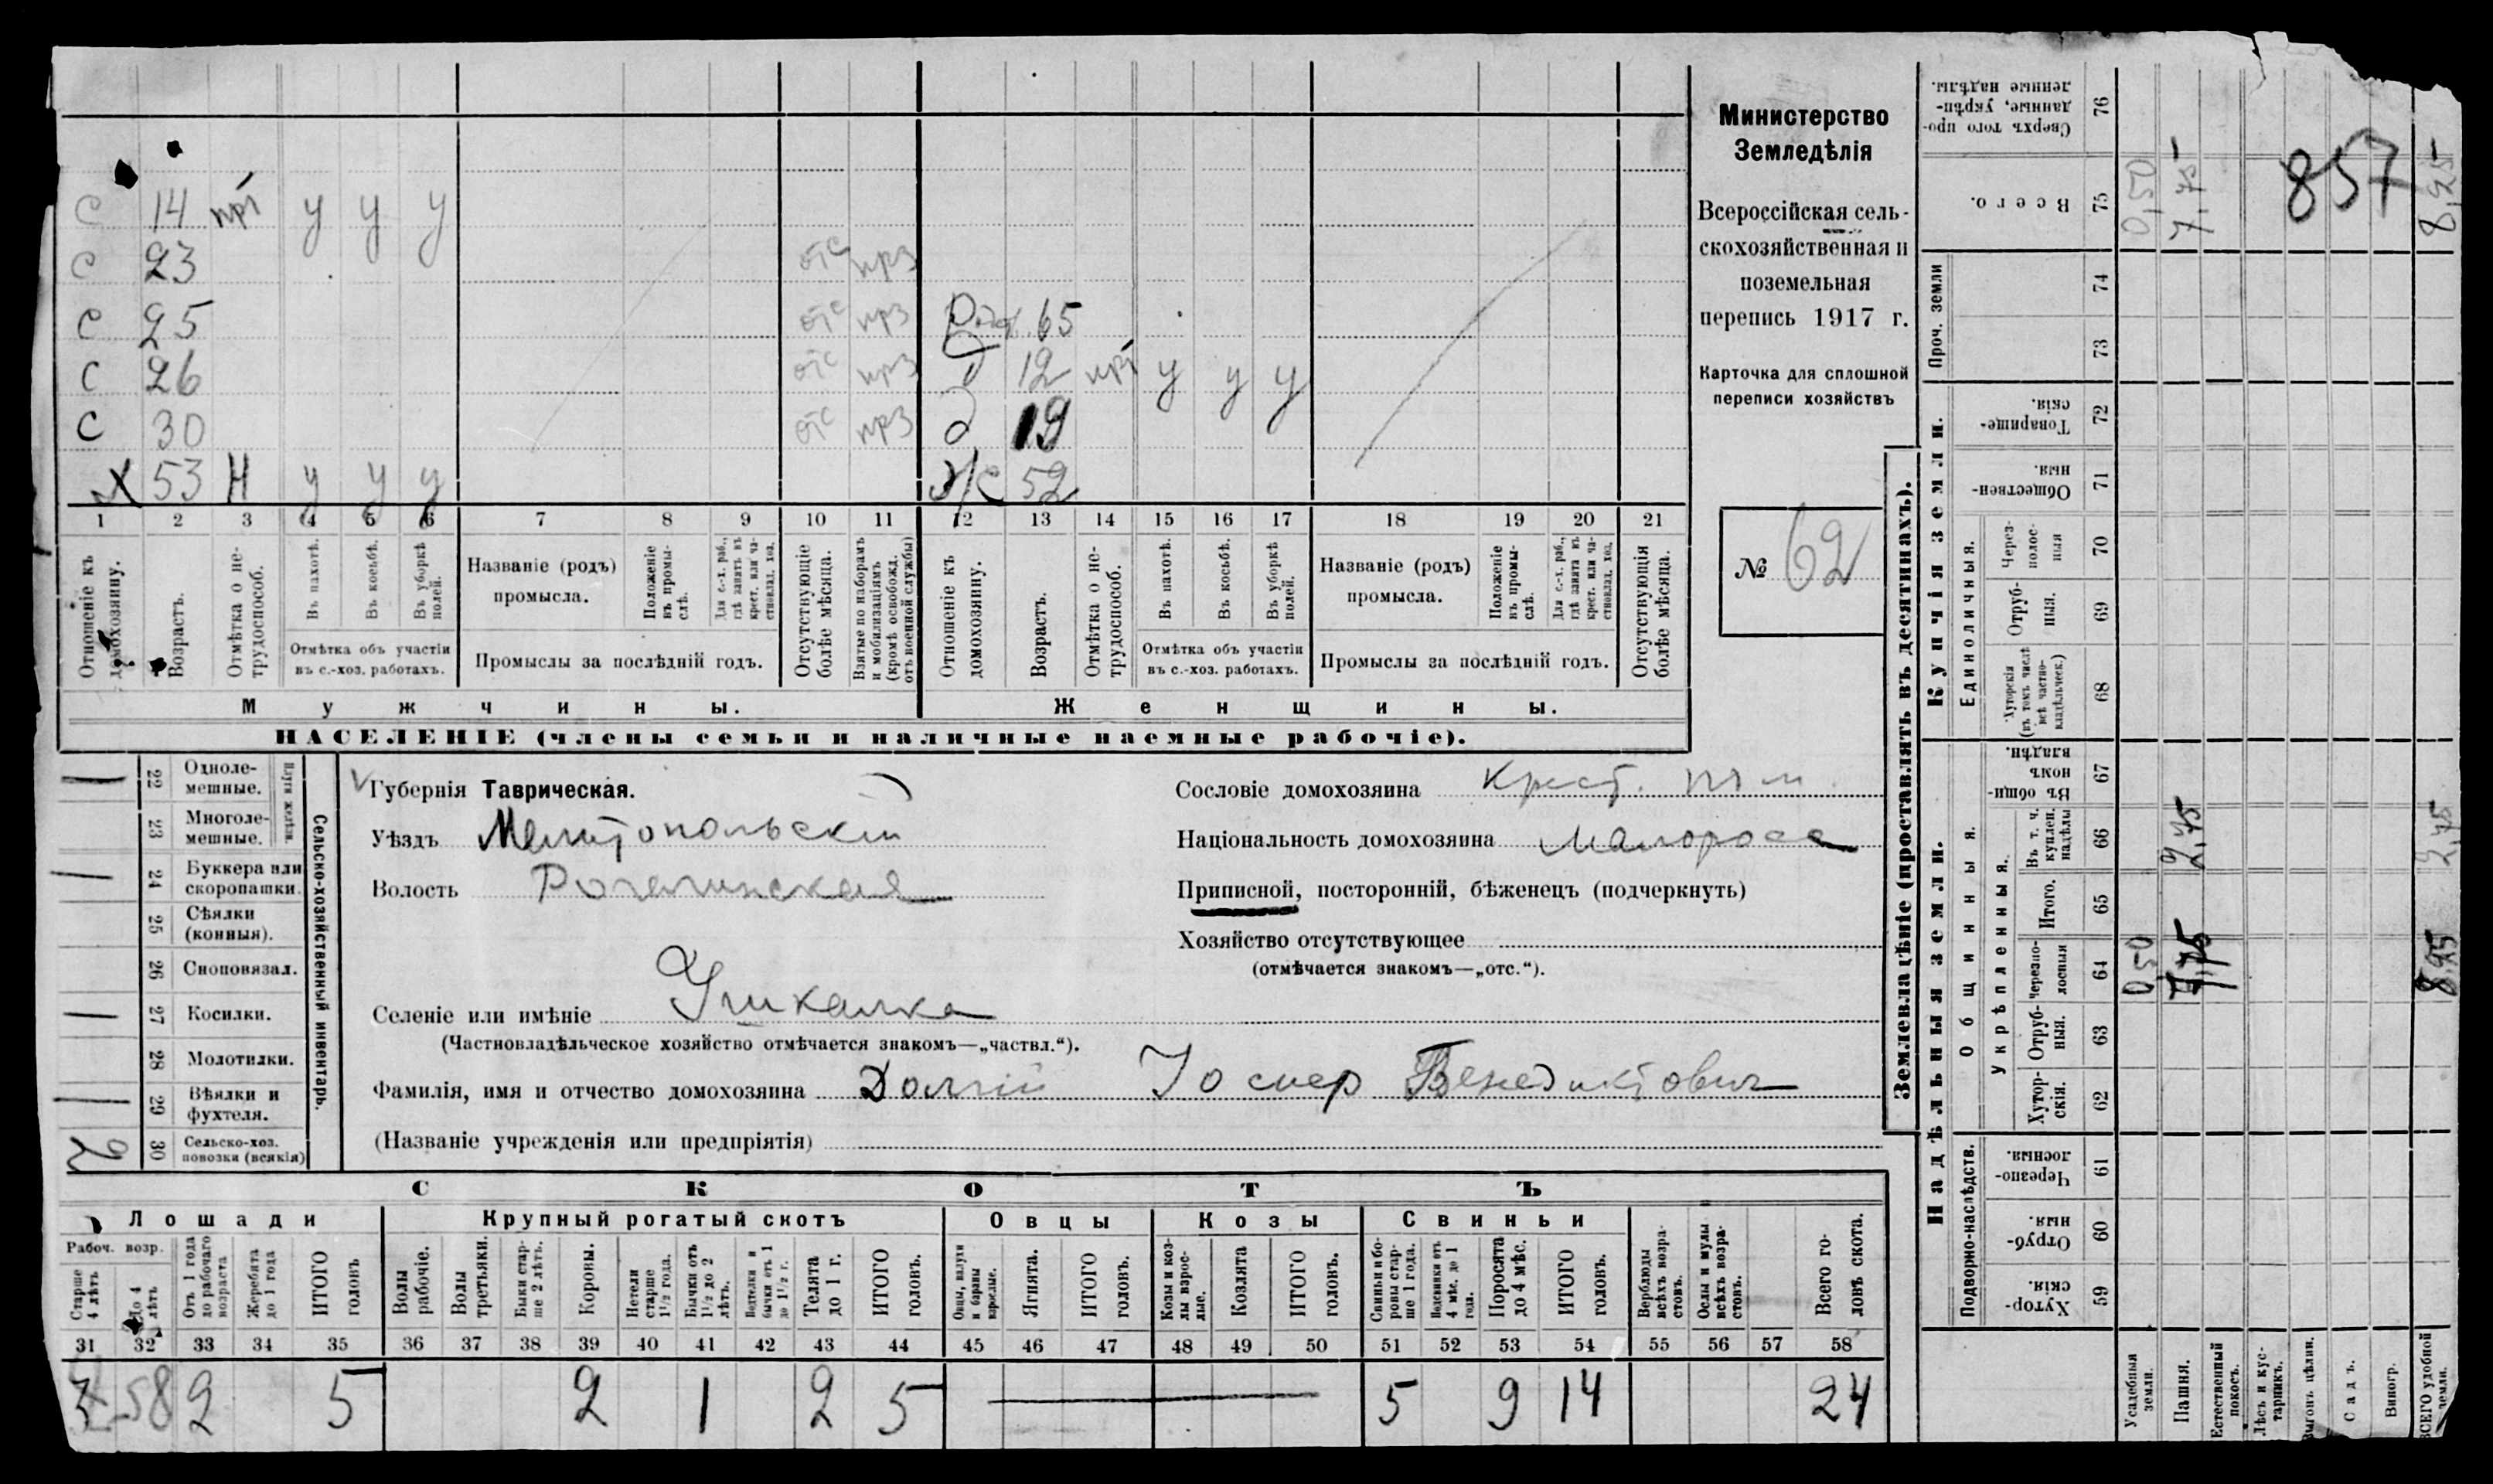 Министерство
Земледѣлія
Всероссійская сель-
скохозяйственная и
поземельная
перепись 1917 г.
Карточка для сплошной
переписи хозяйствъ
№ 62
С 14 нрі у у у
С 23 отс нрз
С 25 отс нрз 65
С 26 отс нрз д 12 нрі у у у
С 30 отс нрз д 19
Х 53 Н у у у ж/с 52
1 2 3 4 5 6 7 8 9 10 11 12 13 14 15 16 17 18 19 20 21
Отношеніе къ домохозяину.
Возрастъ.
Отмѣтка о не-
трудоспособ.
Въ пахотѣ.
Въ косьбѣ.
Въ уборкѣ
полей.
Отмѣтка объ участіи
въ с.-хоз. работахъ.
Названіе (родъ)
промысла.
Положеніе
въ промы-
слѣ.
Для с.-х. раб.,
гдѣ занятъ въ
крест. или ча-
стновлад. хоз.
Промыслы за послѣдній годъ.
Отсутствующіе
болѣе мѣсяца.
Взятые по наборамъ
и мобилизаціямъ
(кромѣ освобожд.
отъ военной службы)
Отношеніе къ
домохозяину.
Возрастъ.
Отмѣтка о не-
трудоспособ.
Въ пахотѣ.
Въ косьбѣ.
Въ уборкѣ
полей.
Отмѣтка объ участіи
въ с.-хоз. работахъ.
Названіе (родъ)
промысла.
Положеніе
въ промы-
слѣ.
Для с.-х. раб.,
гдѣ занята въ
крест. или ча-
стновлад. хоз.
Промыслы за послѣдній годъ.
Отсутствующія
болѣе мѣсяца.
Мужчины.
Женщины.
НАСЕЛЕНІЕ (члены семьи и наличные наемные рабочіе).
22 Одноле-
мешные.
23 Многоле-
мешные.
24 Буккера или
скоропашки.
25 Сѣялки
(конныя).
26 Сноповязал.
27 Косилки.
28 Молотилки.
29 Вѣялки и
фухтеля.
30 Сельско-хоз.
повозки (всякія)
Сельско-хозяйственный инвентарь.
Губернія Таврическая.
Уѣздъ Мелитопольскій
Волость Рогачинская
Селеніе или имѣніе Ушкалка
(Частновладѣльческое хозяйство отмѣчается знакомъ—„частвл.“).
Фамилія, имя и отчество домохозяина Долгій Іосиф Бенедиктович
(Названіе учрежденія или предпріятія)
Сословіе домохозяина Крест.
Національность домохозяина Малоросс
Приписной, посторонній, бѣженецъ (подчеркнуть)
Хозяйство отсутствующее
(отмѣчается знакомъ—„отс.“).
СКОТЪ
Лошади
Рабоч. возр.
Старше
4 лѣтъ
До 4
лѣтъ
Отъ 1 года
до рабочаго
возраста
Жеребята
до 1 года
ИТОГО
головъ
Крупный рогатый скотъ
Волы
рабочіе.
Волы
третьяки.
Быки стар-
ше 2 лѣтъ.
Коровы.
Нетели
старше
1½ года.
Бычки отъ
1½ до 2
лѣтъ.
Подтелки и
бычки отъ 1
до 1½ г.
Телята
до 1 г.
ИТОГО
головъ.
Овцы
Овцы, валухи
и бараны
взрослые.
Ягнята.
ИТОГО
головъ.
Козы
Козы и коз-
лы взрос-
лые.
Козлята
ИТОГО
головъ.
Свиньи
Свиньи и бо-
ровы стар-
ше 1 года.
Подсвинки отъ
4 мѣс. до 1
года.
Поросята
до 4 мѣс.
ИТОГО
головъ.
Верблюды
всѣхъ возра-
стовъ.
Ослы и мулы
всѣхъ возра-
стовъ.
Всего го-
ловъ скота.
31 32 33 34 35 36 37 38 39 40 41 42 43 44 45 46 47 48 49 50 51 52 53 54 55 56 57 58
3 58 2 5 2 1 2 5 5 9 14 24
Землевладѣніе (проставлять въ десятинахъ).
Сверхъ того про-
данные, укрѣп-
ленные надѣлы. 76
Всего. 75 0,50 7,75 857 8,25
Проч. земли 74
73
Купчія земли.
Товарище-
скія. 72
Обществен-
ныя. 71
Единоличныя.
Через-
полос-
ныя 70
Отруб-
ныя. 69
Хуторскія
(въ томъ числѣ
всѣ частно-
владѣльческ.) 68
Надѣльныя земли.
Общинныя.
Въ общин-
номъ
владѣн. 67
Укрѣпленныя.
Въ т. ч.
куплен.
надѣлы 66 2,75 2,75
Итого. 65
Черезпо-
лосныя 64 0,50 7,75 8,25
Отруб-
ныя. 63
Хутор-
скія. 62
Подворно-наслѣдств.
Черезпо-
лосныя. 61
Отруб-
ныя. 60
Хутор-
скія. 59
Усадебныя
земли.
Пашня.
Естественный
покосъ.
Лѣсъ и кус-
тарникъ.
Выгонъ цѣлин.
Садъ.
Виногр.
ВСЕГО удобной
земли.